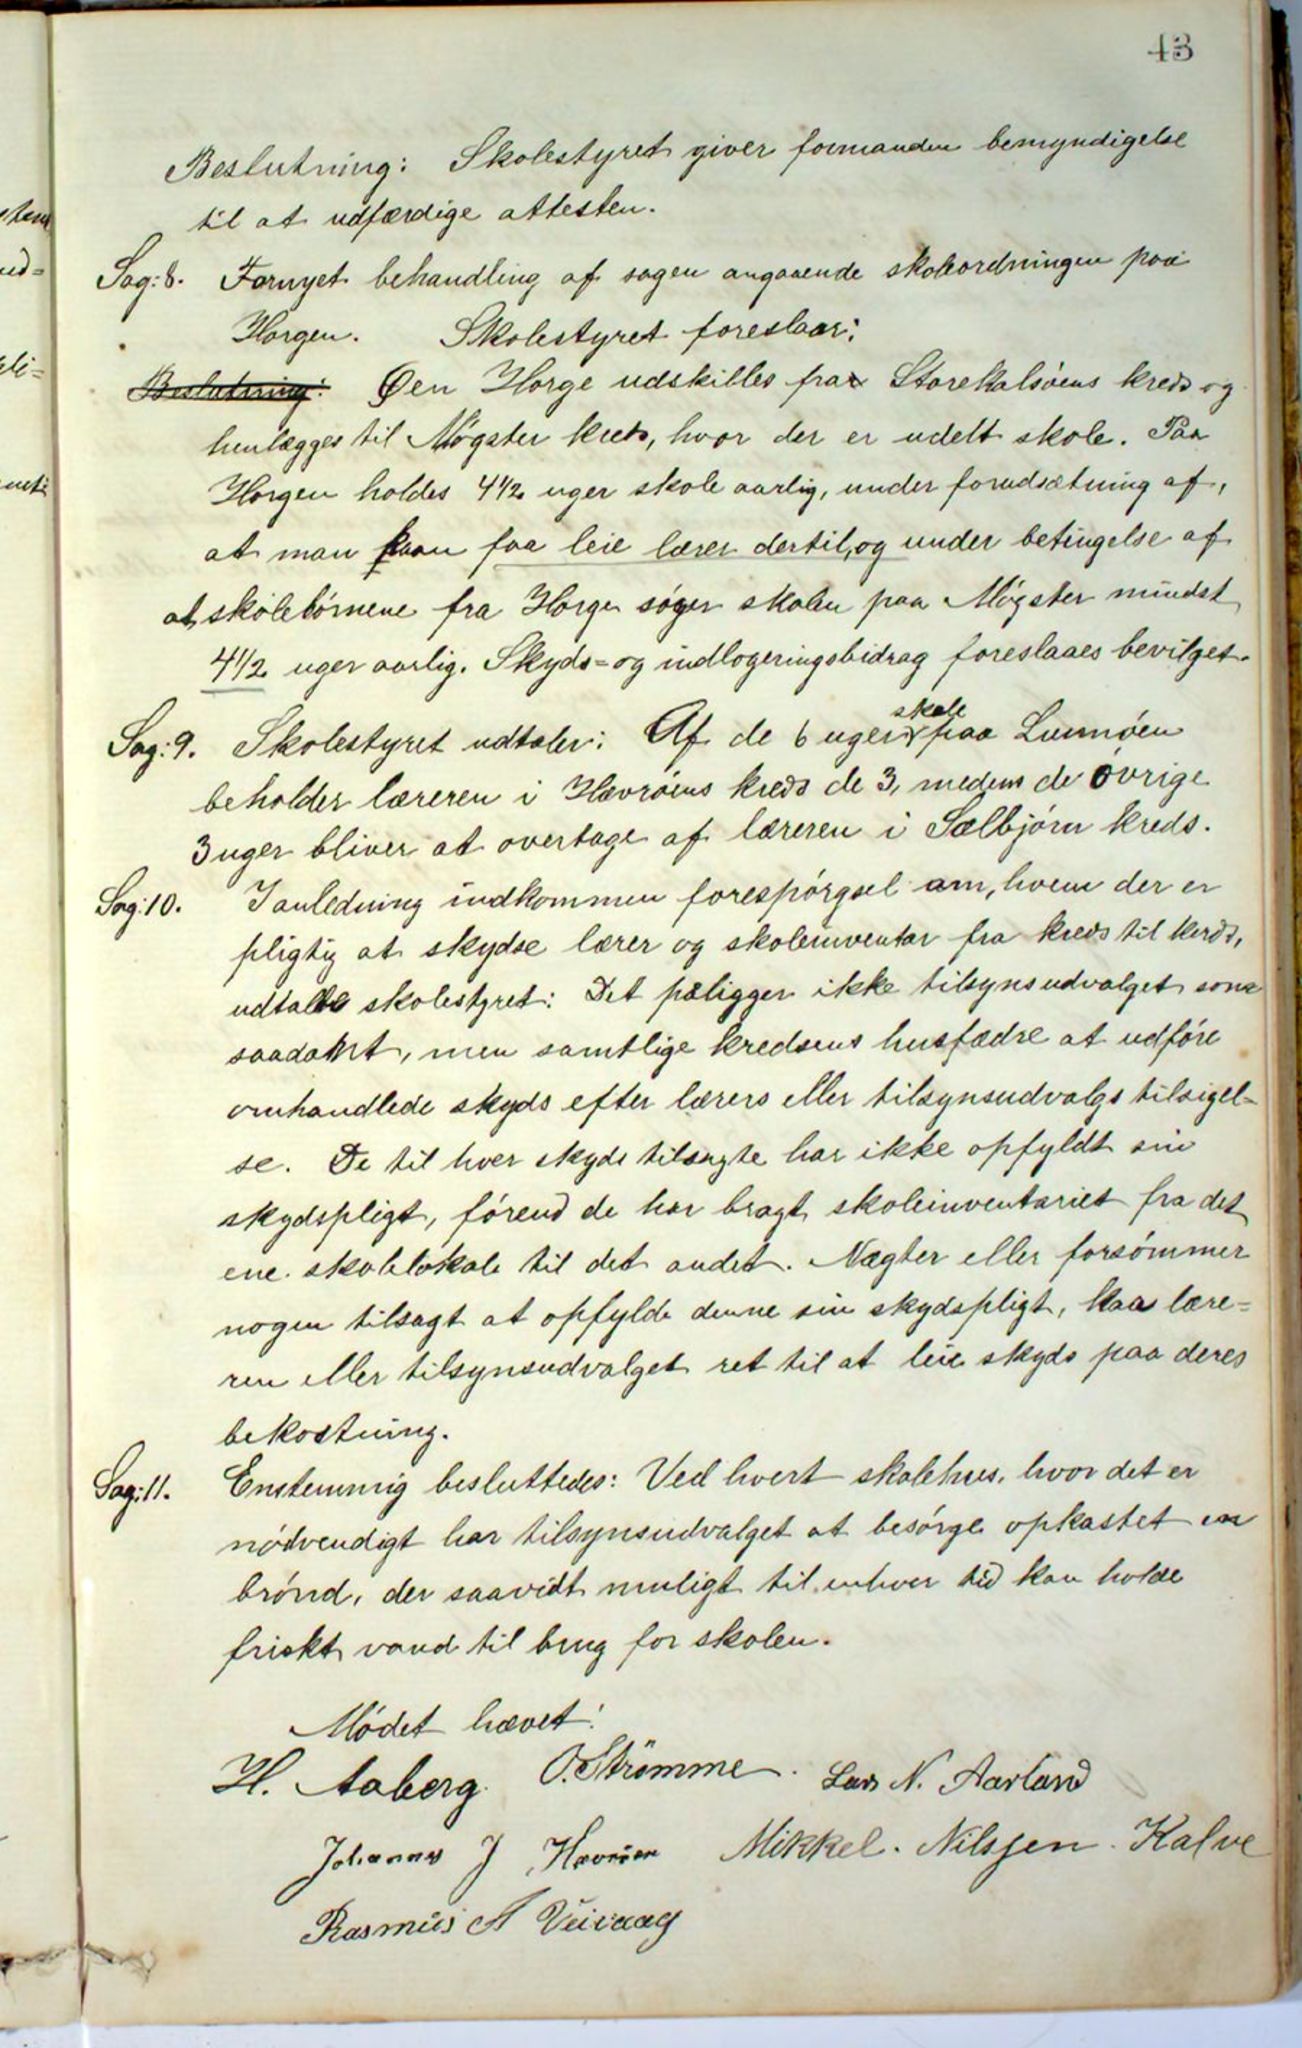 43
Beslutning: Skolestyret giver formanden bemyndigelse
til at udfærdige attesten.
Sag: 8. Fornyet behandling af sagen angaaende skoleordningen paa
Horgen. Skolestyret foreslaar:
Beslutning: Øen Horge udskilles fra Storekalsöens kreds og
henlægges til Møgster kreds, hvor der er udelt skole. Paa
Horgen holdes 4 1/2 uger skole aarlig, under forudsætning af,
at man kan faa leie lærer dertil, og under betingelse af
at skolebörnene fra Horge söger skolen paa Mögster mindst
4 1/2 uger aarlig. Skyds= og indlogeringsbidrag foreslaaes bevilget.
Sag: 9. Skolestyret udtaler: Af de 6 uger skole paa Lunnöen
beholder læreren i Hævröens kreds de 3, medens de övrige
3 uger bliver at overtage af læreren i Sælbjörn kreds.
Sag: 10. I anledning indkommen forespörgsel om, hvem der er
pligtig at skydse lærer og skoleinventar fra kreds til kreds,
udtalte skolestyret: Det paaligger ikke tilsynsudvalget som
saadant, men samtlige kredsens husfædre at udföre
omhandlede skyds efter lærers eller tilsynsudvalgs tilsigel-
se. De til hver skyds tilsagte har ikke opfyldt sin
skydspligt, förend de har bragt skoleinventariet fra det
ene skolelokale til det andet. Nægter eller forsömmer
nogen tilsagt at opfylde denne sin skydspligt, har lære=
ren eller tilsynsudvalget ret til at leie skyds paa deres
bekostning.
Sag: 11. Enstemmig besluttedes: Ved hvert skolehus, hvor det er
nödvendigt har tilsynsudvalget at besörge opkastet en
brönd, der saavidt muligt til enhver tid kan holde
friskt vand til brug for skolen.
Mödet hævet!
H. Aaberg. O. Strömme. Lars N. Aarland
Johannes J Hævröen Mikkel. Nilssen. Kalve
Rasmus A Veivaag